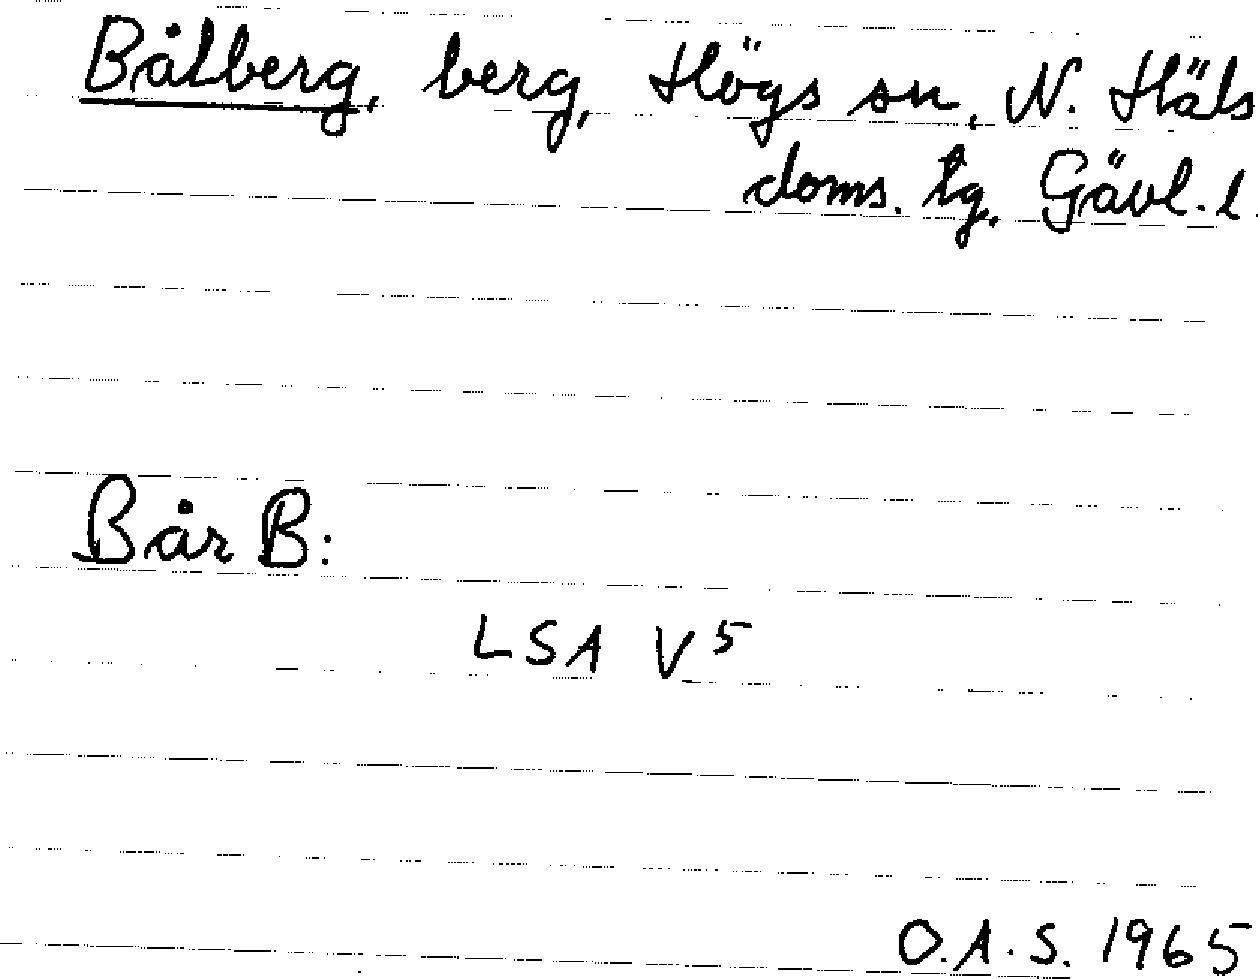 Bålberg, berg, Högs sn, N. Häls
doms. tg, Gävl. l.
Bår B:
LSA V5
O.A.S. 1965